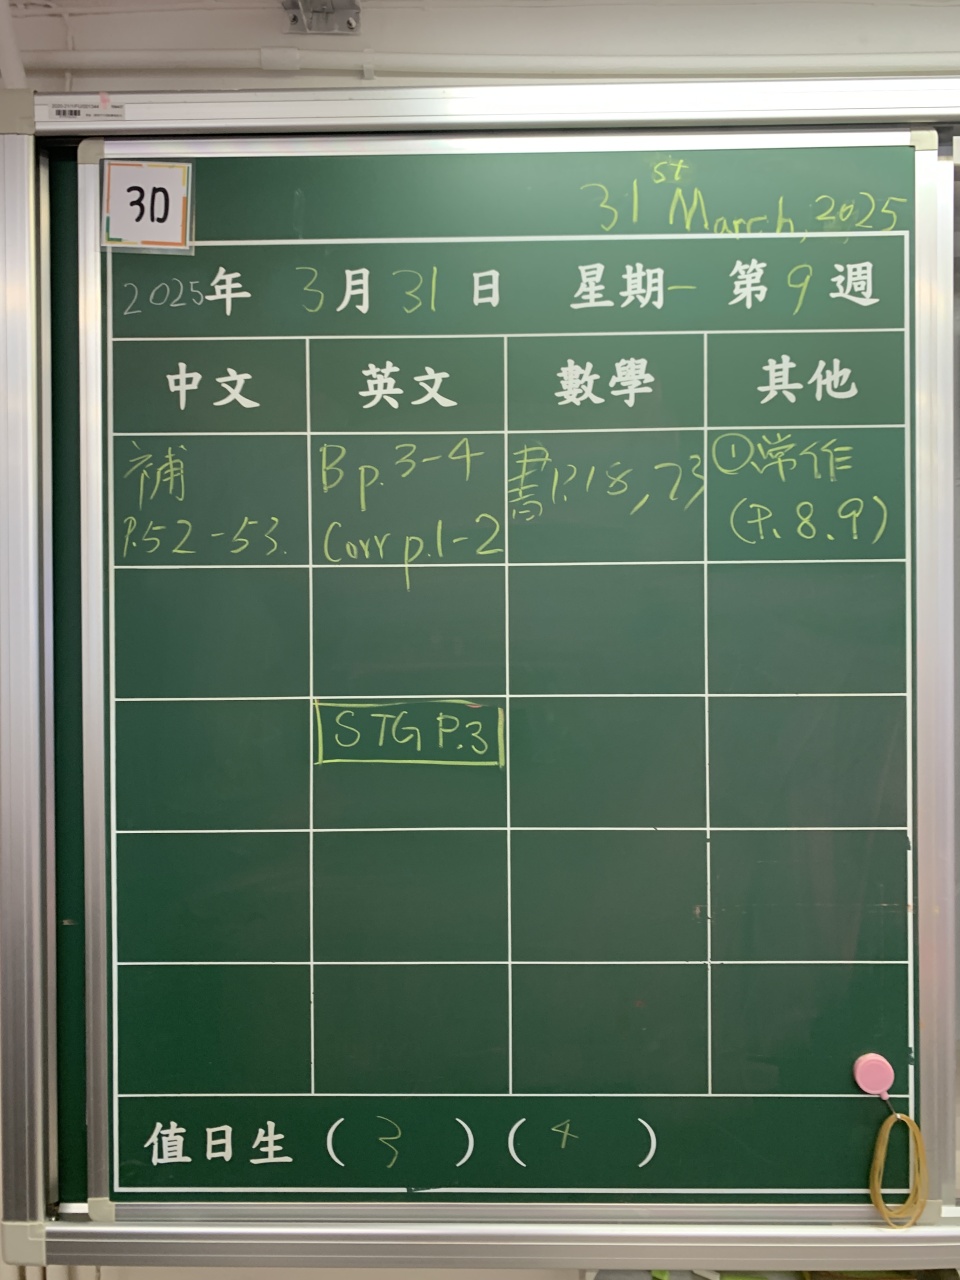 3D
31st March, 2025
2025年 3月31日 星期一 第9週
中文 英文 數學 其他
補
P.52-53.
B p.3-4
Corr p.1-2
書P.18,23
①常作
(P.8.9)
STG P.3
值日生(3)(4)